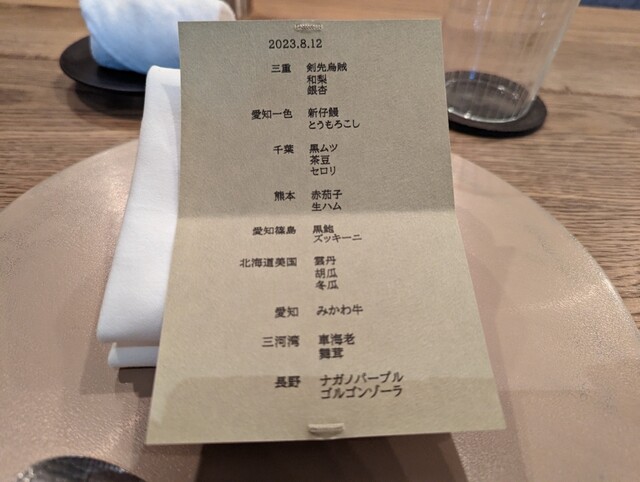 2023.8.12
三重 剣先烏賊
和梨
銀杏
愛知一色 新仔鰻
とうもろこし
千葉 黒ムツ
茶豆
セロリ
熊本 赤茄子
生ハム
愛知篠島 黒鮑
ズッキーニ
北海道美国 雲丹
胡瓜
冬瓜
愛知 みかわ牛
三河湾 車海老
舞茸
長野 ナガノパープル
ゴルゴンゾーラ